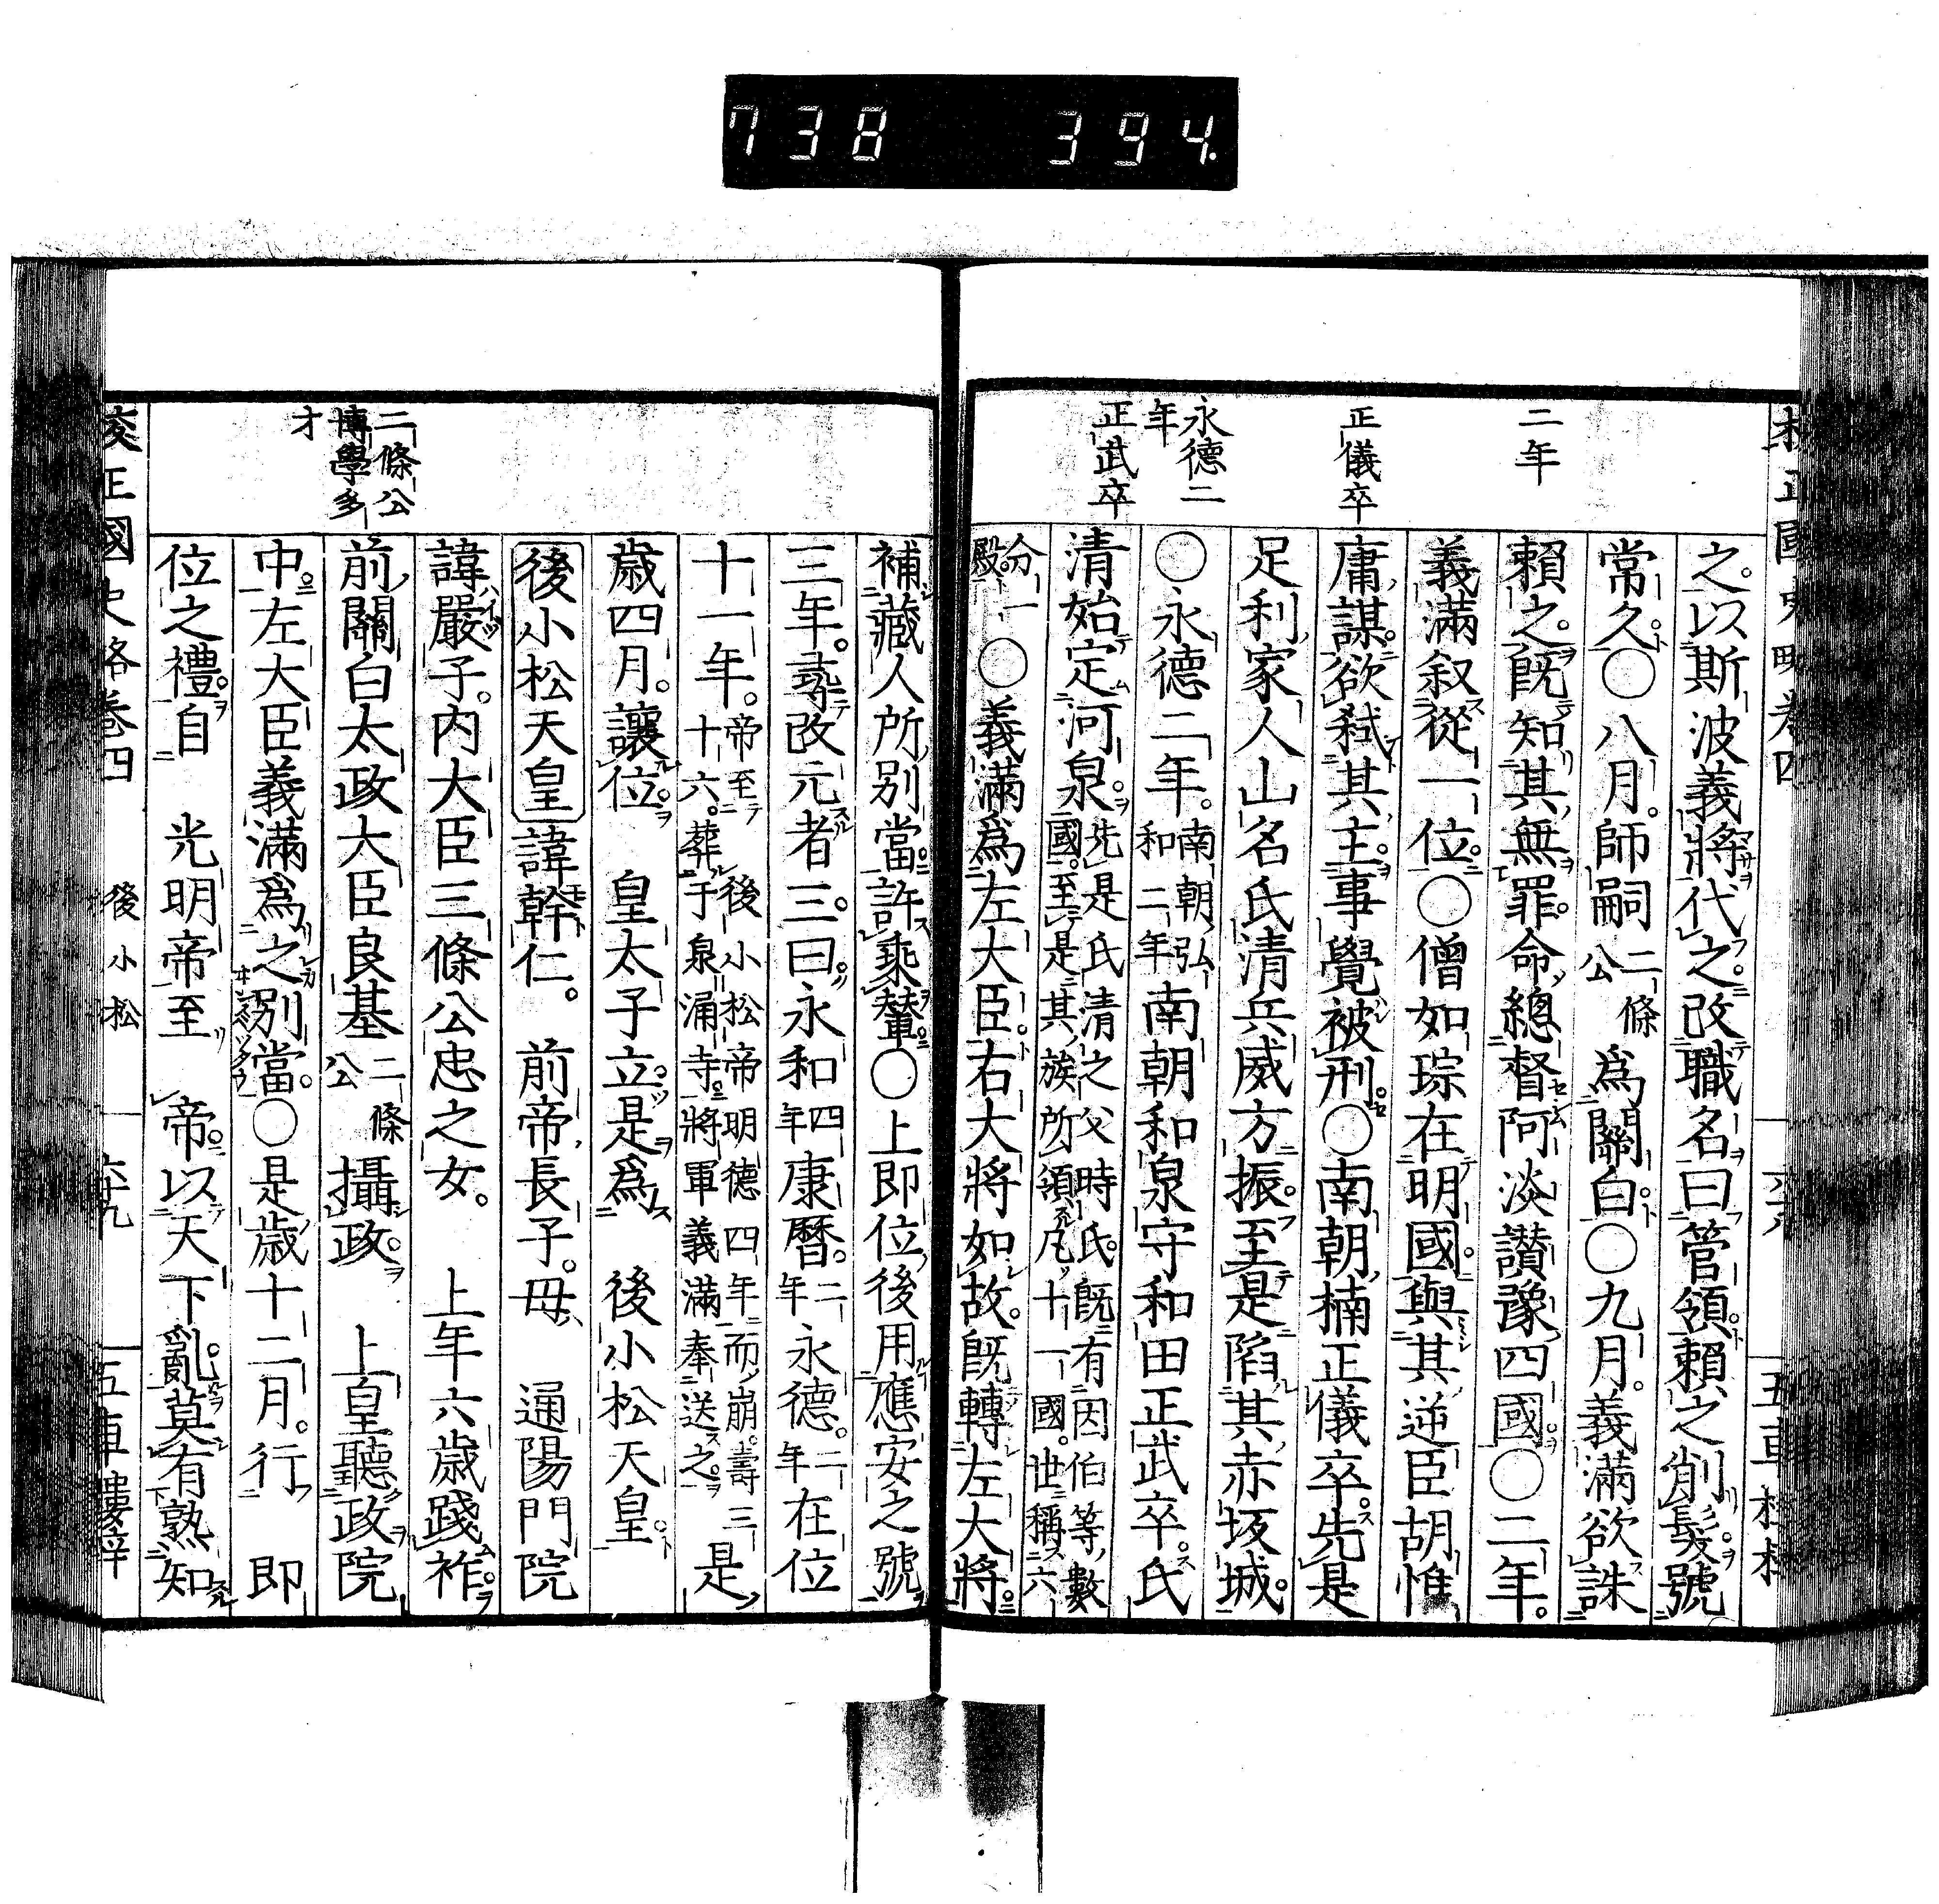 738 394.
二年
正儀卒
永德二
年
正武卒
之以斯波義將代之改職名曰管領賴之削髮號
常久〇八月師嗣二條公爲關白〇九月義滿欲誅
賴之既知其無罪命總督阿淡讃豫四國〇二年
義滿叙從一位〇僧如琮在明國與其逆臣胡惟
庸謀欲弑其主事覺被刑〇南朝楠正儀卒先是
足利家人山名氏清兵威方振至是陷其赤坂城
〇永德二年南朝弘和二年南朝和泉守和田正武卒氏
清始定河泉先是氏清之父時氏既有因伯等數國至是其族所領凡十一國世稱六
分一殿〇義滿爲左大臣右大將如故既轉左大將
補藏人所別當許乘輦〇上即位後用應安之號
三年蓦改元者三曰永和四年康曆二年永德二年在位
十一年帝至後小松帝明德四年而崩壽三十六葬于泉涌寺將軍義滿奉送之是
歲四月讓位 皇太子立是爲 後小松天皇
後小松天皇諱幹仁 前帝長子母 通陽門院
諱嚴子內大臣三條公忠之女 上年六歲踐祚
前關白太政大臣良基二條公攝政 上皇聽政院
中左大臣義滿爲之別當〇是歲十二月行 即
位之禮自 光明帝至 帝以天下亂莫有熟知
二條公
博學多
才
校正國史略卷四 後小松 六十九 五車樓梓